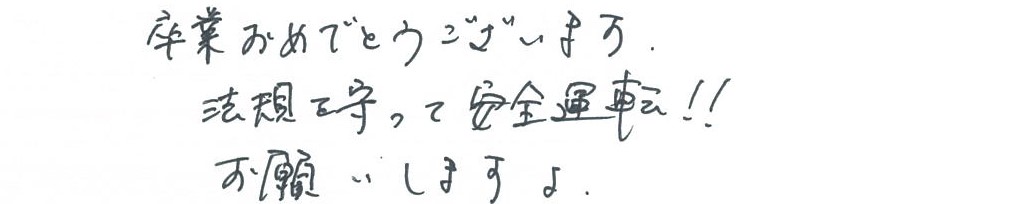 卒業おめでとうございます.
法規を守って安全運転!!
お願いしますよ.